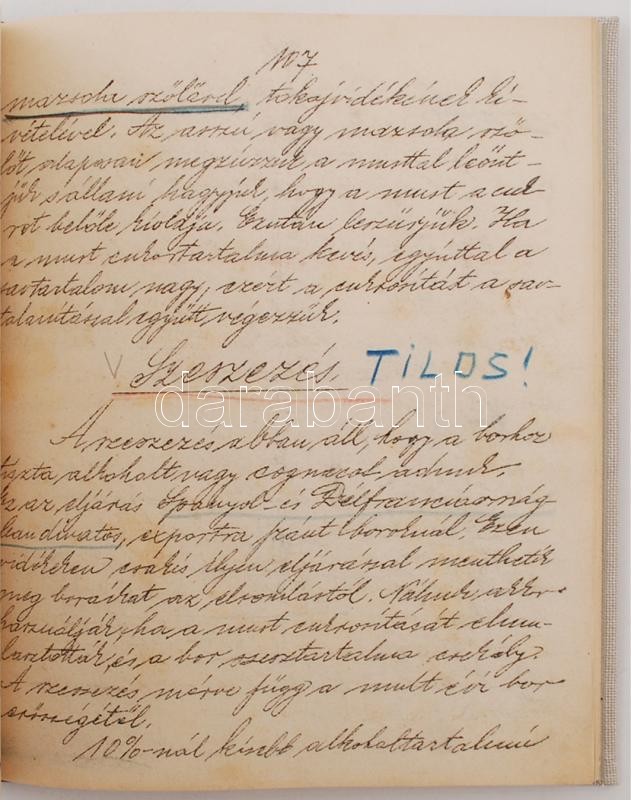 107
mazsola szőlővel tokajvidékének ki-
vételével. Az aszú vagy mazsola sző-
lőt alaposan megzúzzuk a musttal leönt-
jük s állani hagyjuk, hogy a must a cuk-
rot belőle kioldja. Ezután leszűrjük. Ha
a must cukortartalma kevés, egyúttal a
savtartalom nagy, ezért a cukrosítást a sav-
talanítással együtt végezzük.
V Szeszezés TILOS!
darabanth
A szeszezés abban áll, hogy a borhoz
tiszta alkoholt vagy cognacot adunk.
Ez az eljárás Spanyol- és Délfranciaország
ban divatos, exportra szánt boroknál. Ezen
vidékeken csakis ilyen eljárással menthetik
meg boraikat az elromlástól. Nálunk akkor
használják, ha a must cukrosítását elmu-
lasztották, és a bor szesztartalma csekély.
A szeszezés mérve függ a mult évi bor
erősségétől.
10%-nál kisebb alkoholtartalmú